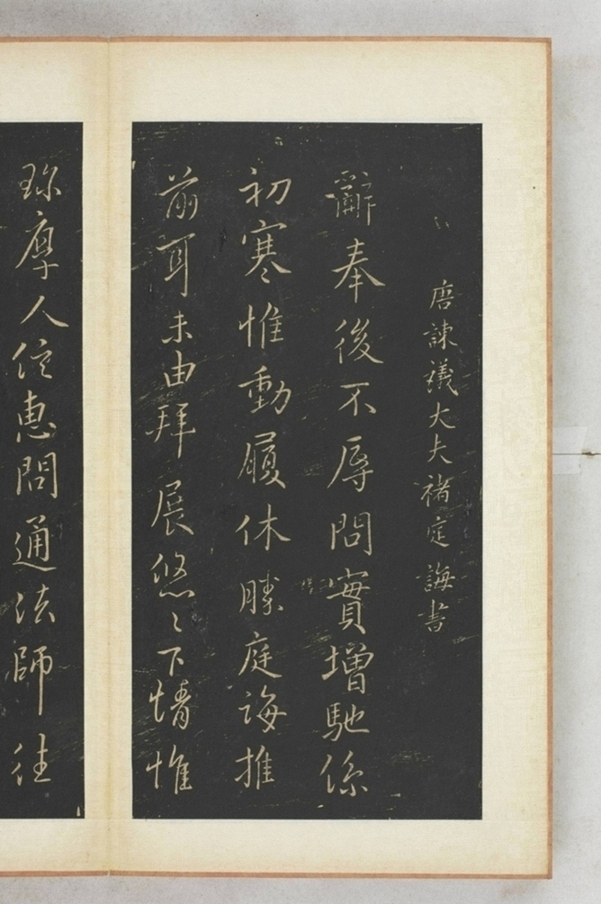 唐諫議大夫禇庭誨書
辭奉後不辱問實增馳係
初寒惟動履休勝庭誨推
前耳未由拜展悠〻下情惟
珎厚人信惠問通法師往